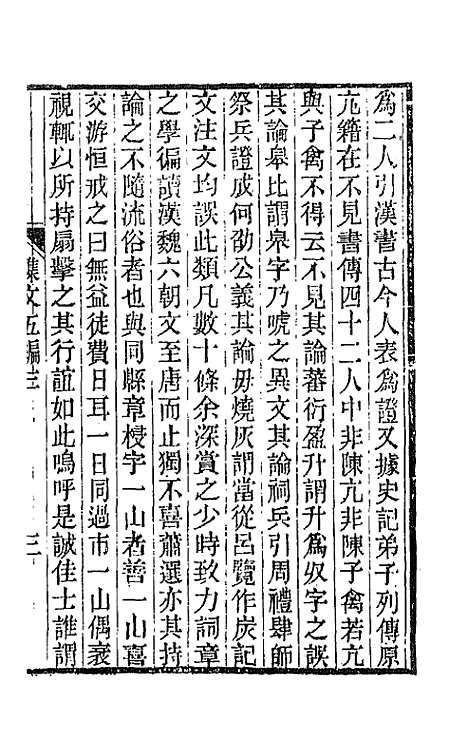 爲二人引漢書古今人表爲證又據史記弟子列傳原
亢籍在不見書傳四十二人中非陳亢非陳子禽若亢
與子禽不得云不見其論蕃衍盈升謂升爲𠬞字之誤
其論皋比謂皋字乃唬之異文其論祠兵引周禮肆師
祭兵證成何劭公義其論毋燒灰謂當從呂覽作炭記
文注文均誤此類凡數十條余深賞之少時致力詞章
之學偏讀漢魏六朝文至唐而止獨不喜蕭選亦其持
論之不隨流俗者也與同縣章梫字一山者善一山喜
交游恒戒之曰無益徒費日耳一日同過市一山偶衺
視輒以所持扇擊之其行誼如此嗚呼是誠佳士誰謂
雜文五編三
三